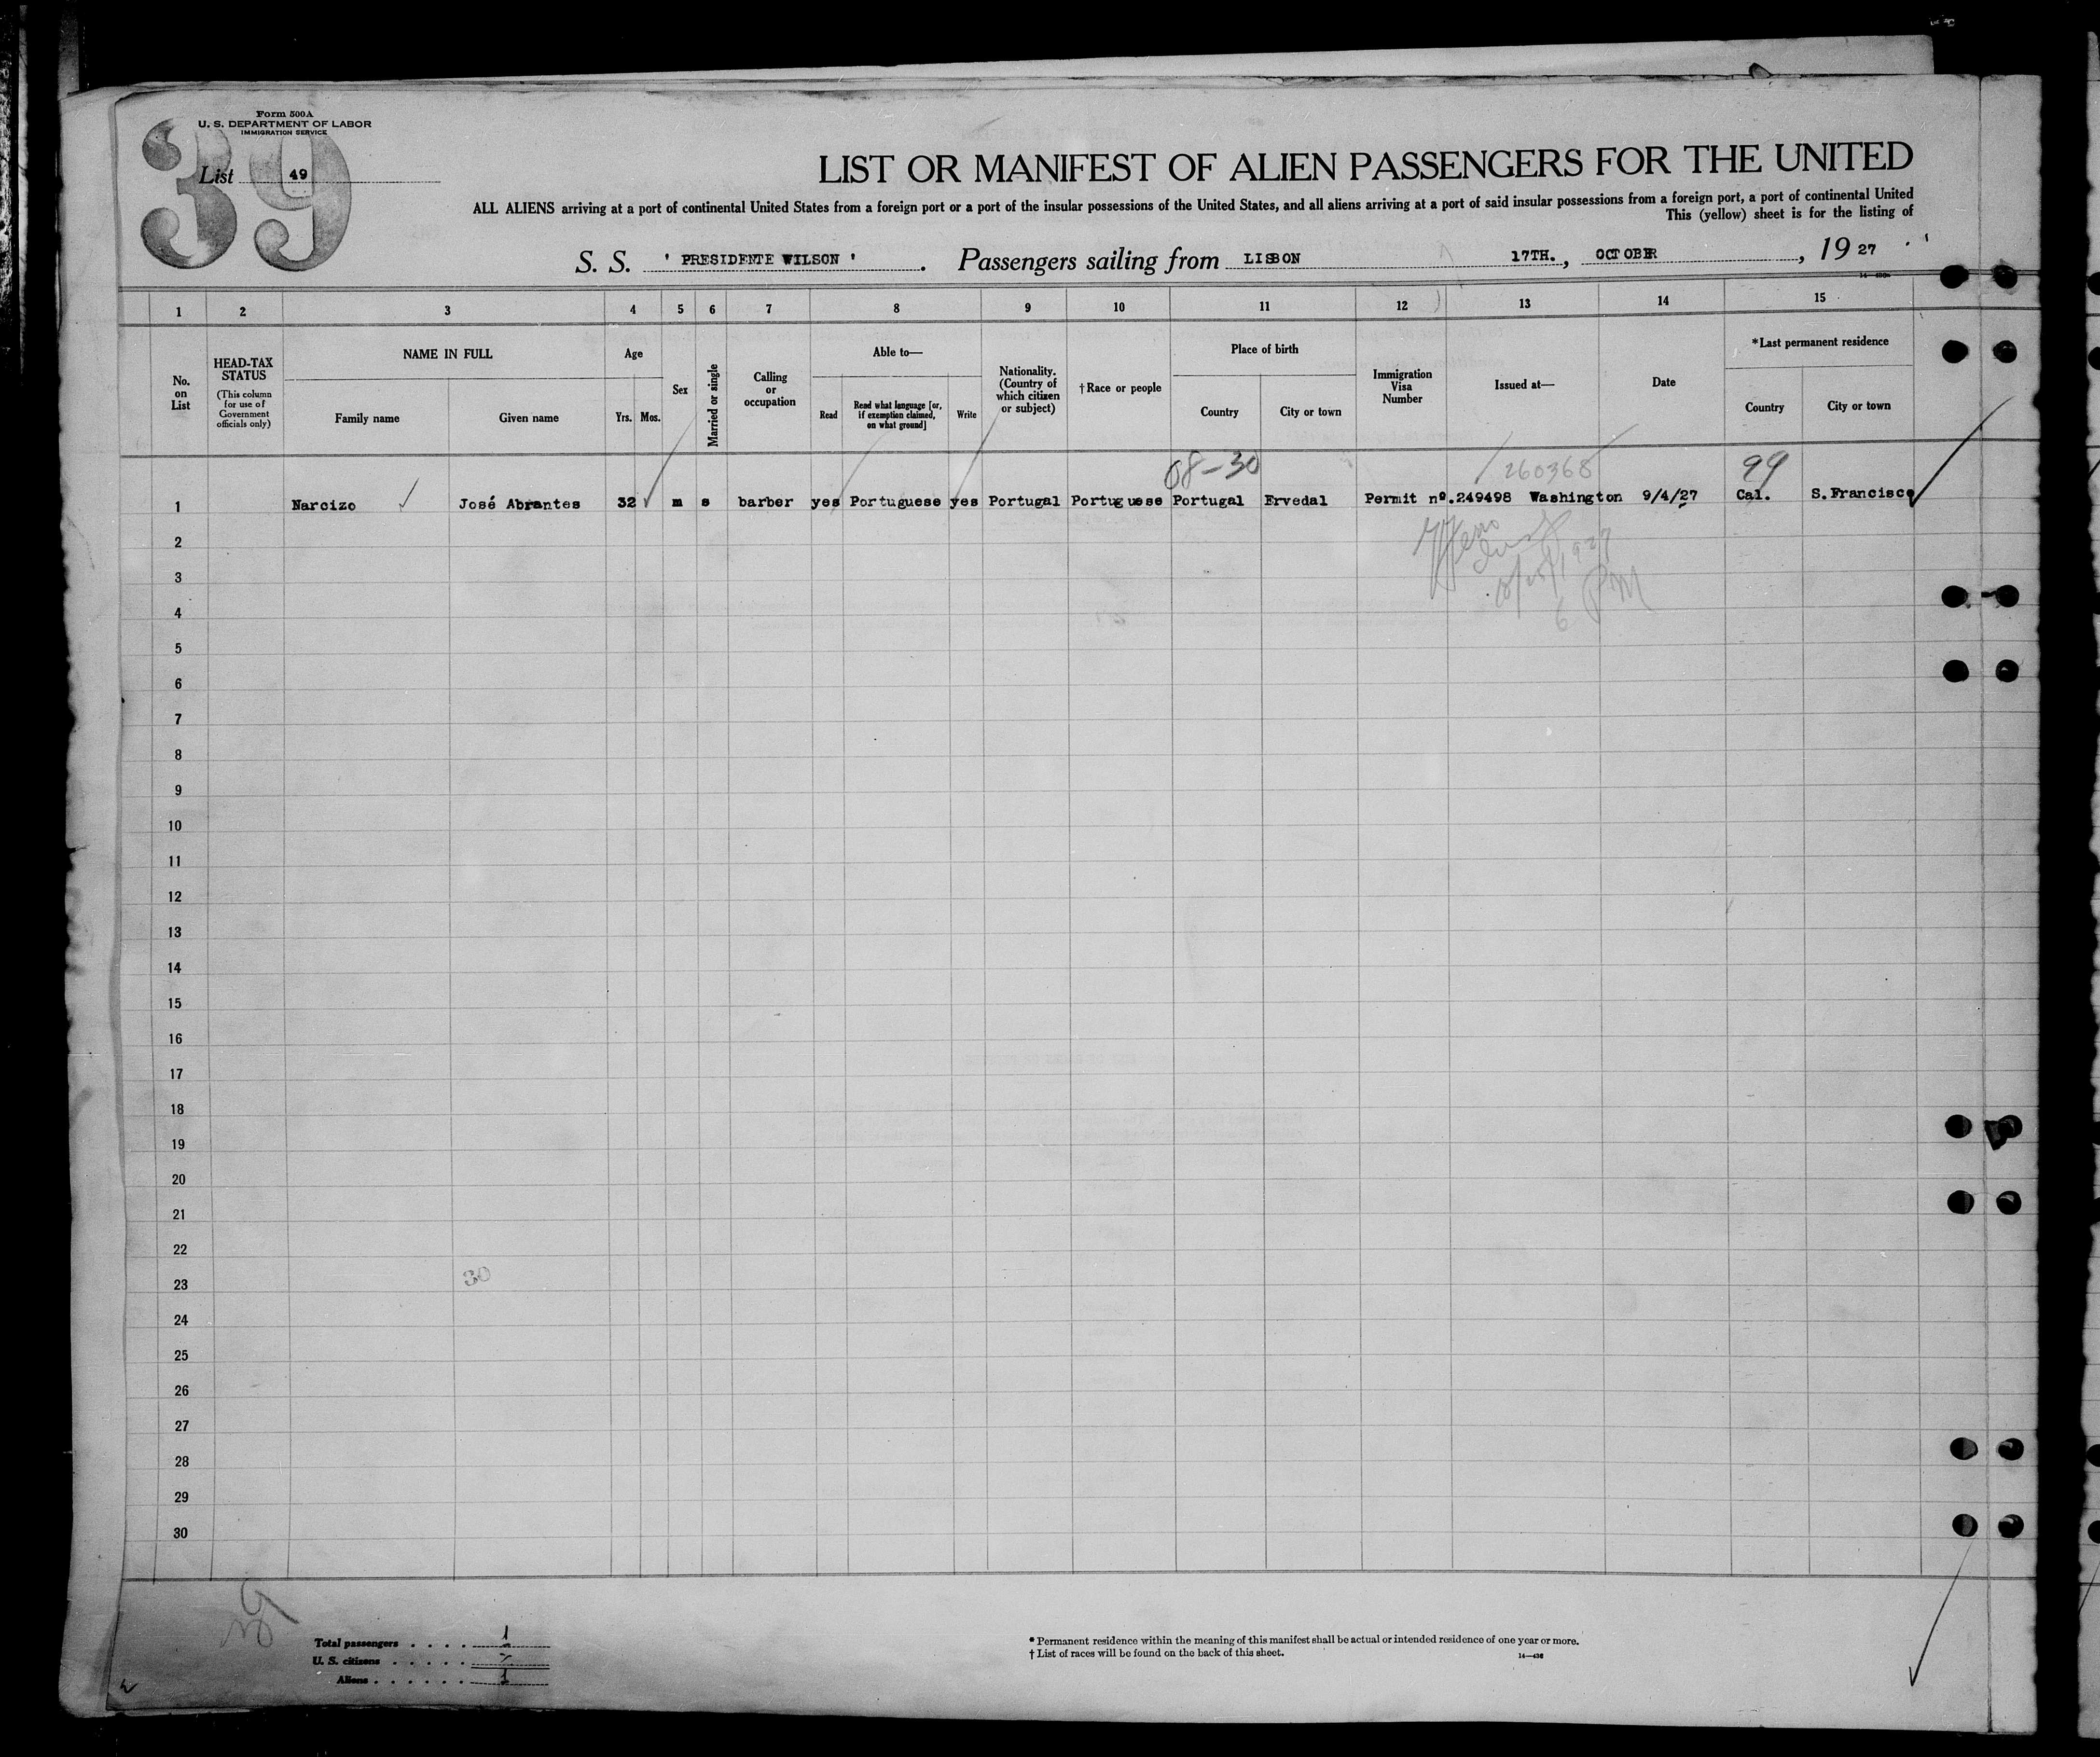 Form 500A
U. S. DEPARTMENT OF LABOR
IMMIGRATION SERVICE
39
List 49
LIST OR MANIFEST OF ALIEN PASSENGERS FOR THE UNITED
ALL ALIENS arriving at a port of continental United States from a foreign port or a port of the insular possessions of the United States, and all aliens arriving at a port of said insular possessions from a foreign port, a port of continental United
This (yellow) sheet is for the listing of
S. S. ' PRESIDENTE WILSON ' . Passengers sailing from LISBON 17TH. , OCTOBER , 19 27
1 2 3 4 5 6 7 8 9 10 11 12 13 14 15
No. on List
HEAD-TAX STATUS
(This column for use of Government officials only)
NAME IN FULL
Family name Given name
Age
Yrs. Mos.
Sex
Married or single
Calling or occupation
Able to—
Read
Read what language [or, if exemption claimed, on what ground]
Write
Nationality. (Country of which citizen or subject)
†Race or people
Place of birth
Country City or town
Immigration Visa Number
Issued at—
Date
*Last permanent residence
Country City or town
08-30 260368 99
1 Narcizo José Abrantes 32 m s barber yes Portuguese yes Portugal Portuguese Portugal Ervedal Permit nº.249498 Washington 9/4/27 Cal. S.Francisco
2
3
6 PM
4
5
6
7
8
9
10
11
12
13
14
15
16
17
18
19
20
21
22
23 30
24
25
26
27
28
29
30
39
Total passengers . . . . 1
U. S. citizens . . . . .
Aliens . . . . . . 1
* Permanent residence within the meaning of this manifest shall be actual or intended residence of one year or more.
† List of races will be found on the back of this sheet.
14—436